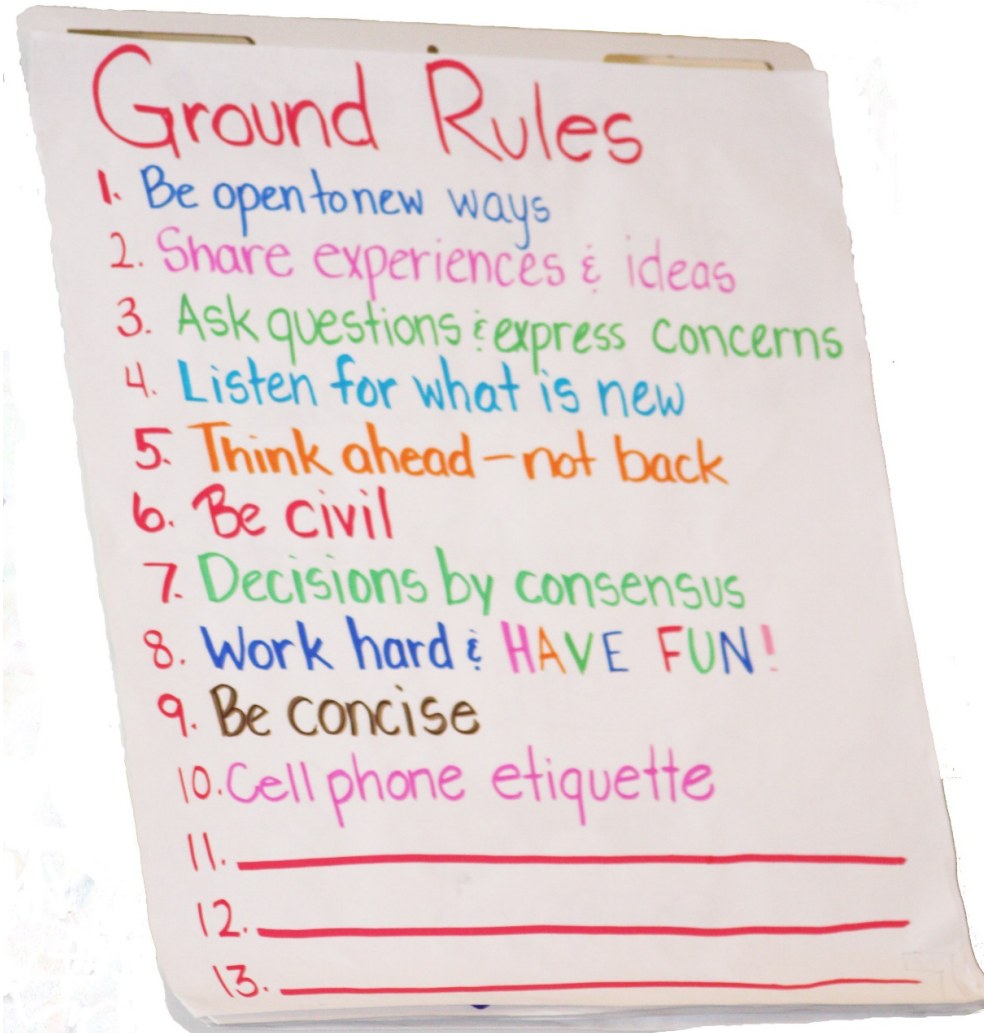 Ground Rules
1. Be open to new ways
2. Share experiences & ideas
3. Ask questions & express concerns
4. Listen for what is new
5. Think ahead - not back
6. Be civil
7. Decisions by consensus
8. Work hard & HAVE FUN!
9. Be concise
10. Cell phone etiquette
11.
12.
13.